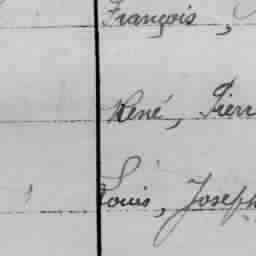 François,
René, Pierr
Louis, Joseph